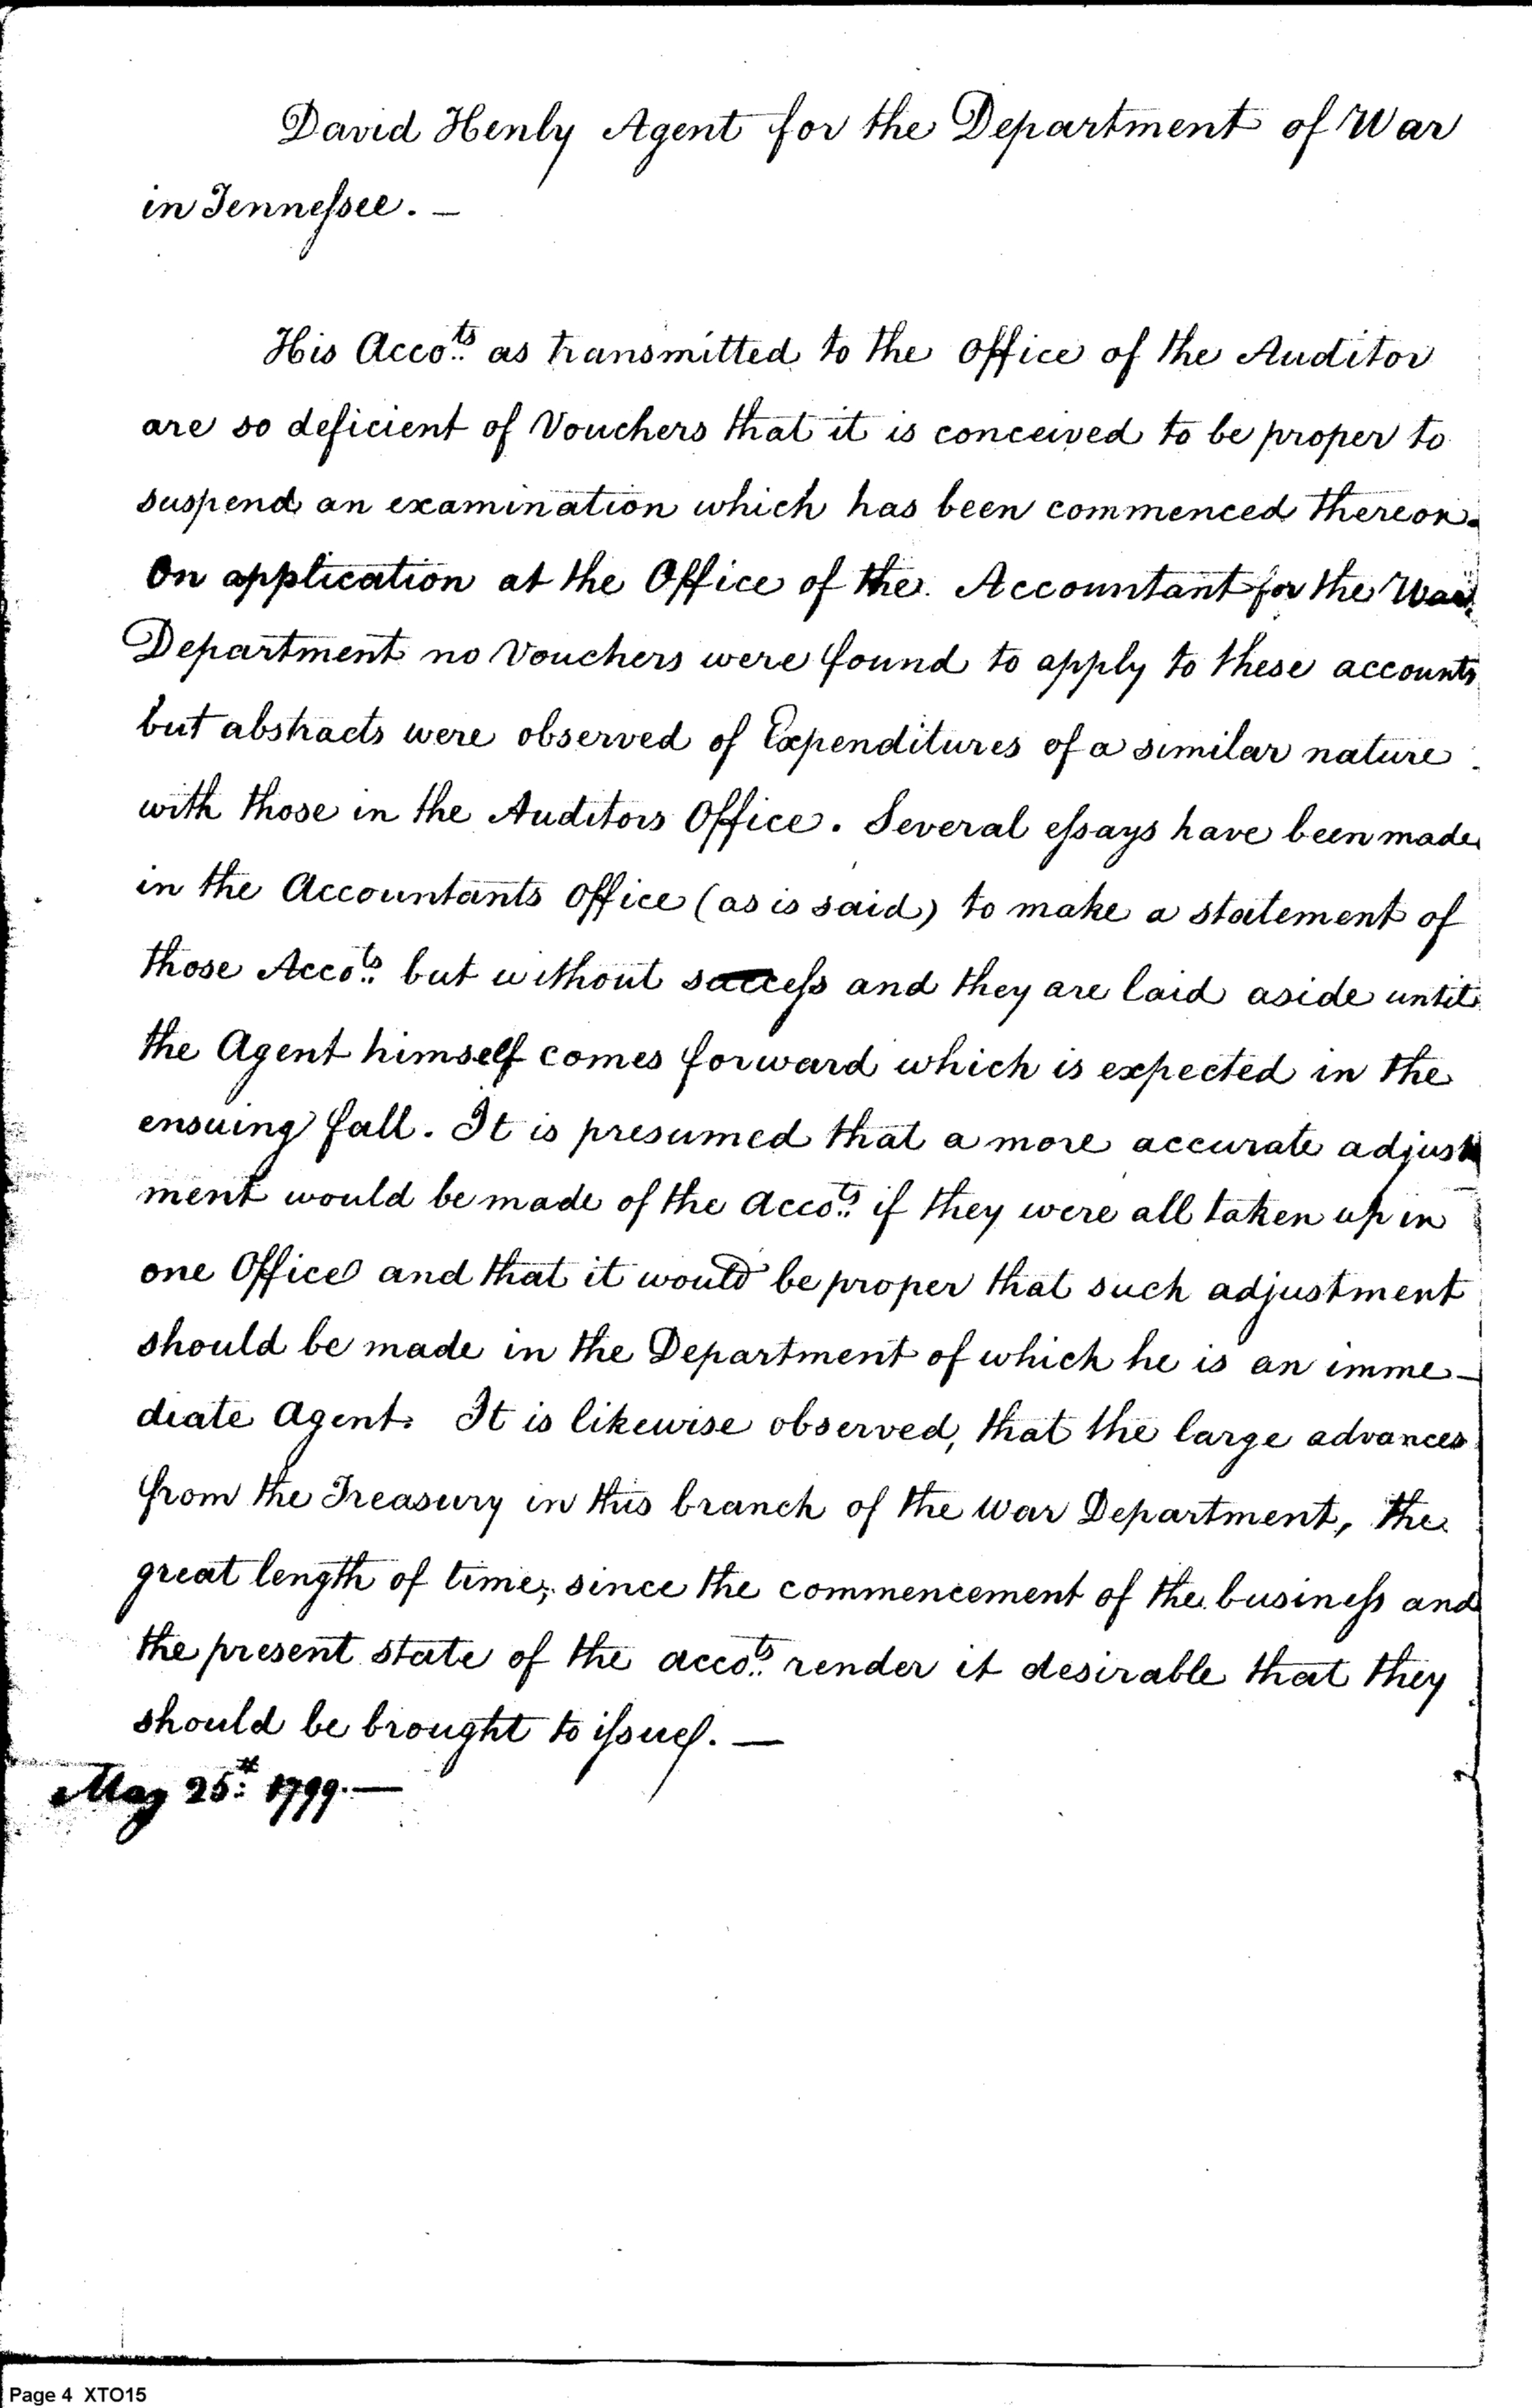 David Henly Agent for the Department of War
in Tennessee. —
His Acco.ts as transmitted to the Office of the Auditor
are so deficient of Vouchers that it is conceived to be proper to
suspend an examination which has been commenced thereon.
On application at the Office of the Accountant for the War
Department no Vouchers were found to apply to these accounts
but abstracts were observed of Expenditures of a similar nature
with those in the Auditors Office. Several essays have been made
in the Accountants Office (as is said) to make a statement of
those Acco.ts but without success and they are laid aside until
the Agent himself comes forward which is expected in the
ensuing fall. It is presumed that a more accurate adjust
ment would be made of the Acco.ts if they were all taken up in
one Office and that it would be proper that such adjustment
should be made in the Department of which he is an imme-
diate Agent. It is likewise observed, that the large advances
from the Treasury in this branch of the War Department, the
great length of time, since the commencement of the business and
the present state of the acco.ts render it desirable that they
should be brought to issue. —
May 25.th 1799. —
Page 4 XTO15